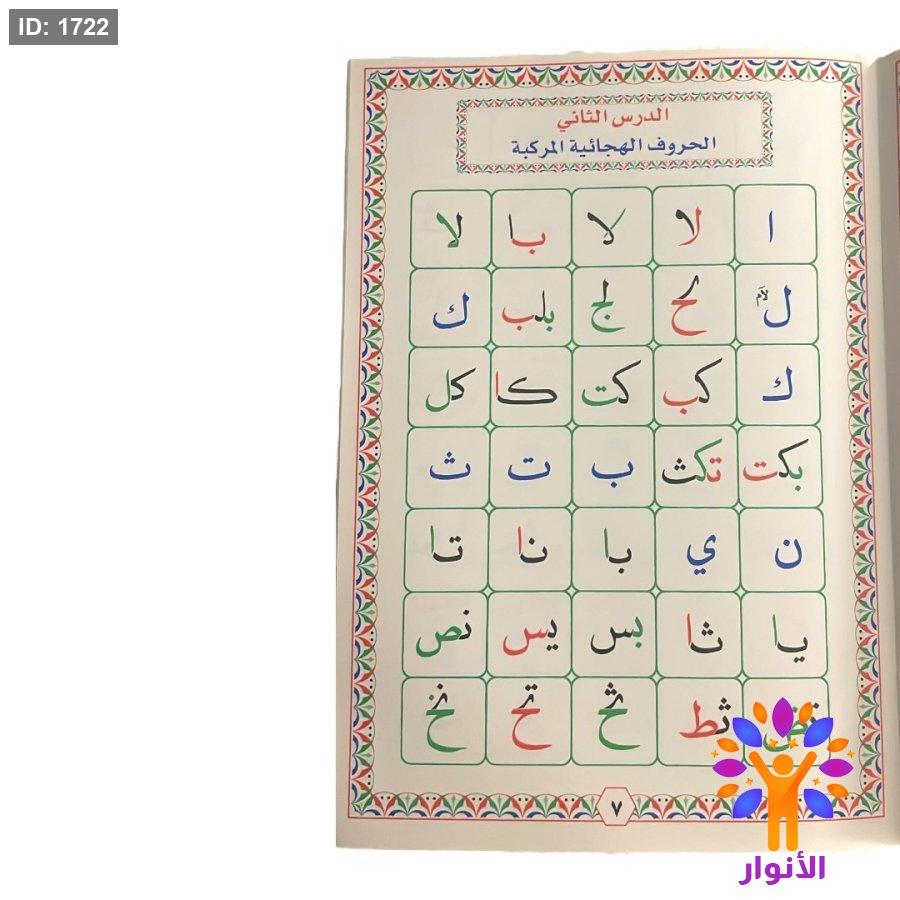 ID: 1722
الدرس الثاني
الحروف الهجائية المركبة
ا لا لا با لا
ل لآم لح لج بلب ك
ك كب كت كا كل
بكت تكث ب ت ث
ن ي با نا تا
يا ثا بس يس نص
ثط ثح تح نخ
٧
الأنوار